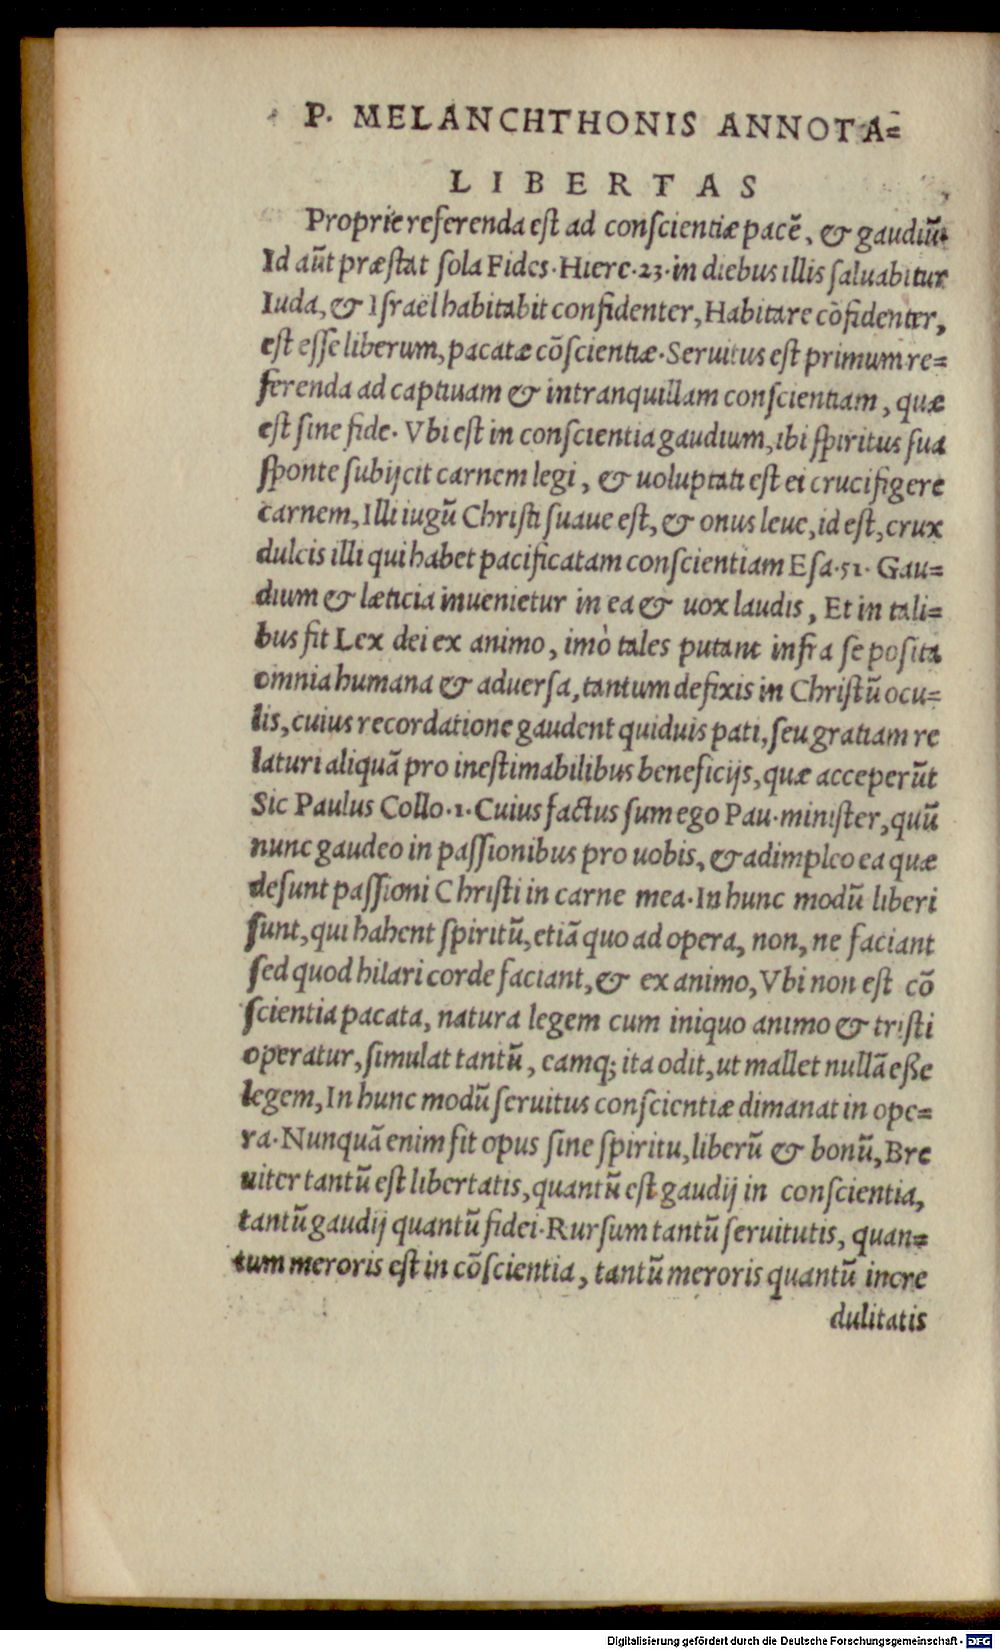 P. MELANCHTHONIS ANNOTA=
LIBERTAS
Proprie referenda est ad conſcientiæ pacē, & gaudiū.
Id aūt præstat ſola Fides. Hiere. 23. in diebus illis ſaluabitur
Iuda, & Iſraël habitabit confidenter, Habitare cōfidenter,
est eſſe liberum, pacatæ cōſcientiæ. Seruitus est primum re=
ferenda ad captiuam & intranquillam conſcientiam, quæ
est ſine fide. Vbi est in conſcientia gaudium, ibi ſpiritus ſua
ſponte ſubijcit carnem legi, & uoluptati est ei crucifigere
carnem, Illi iugū Christi ſuaue est, & onus leue, id est, crux
dulcis illi qui habet pacificatam conſcientiam Eſa. 51. Gau=
dium & læticia inuenietur in ea & uox laudis, Et in tali=
bus fit Lex dei ex animo, imò tales putant infra ſe poſita
omnia humana & aduerſa, tantum defixis in Christū ocu=
lis, cuius recordatione gaudent quiduis pati, ſeu gratiam re
laturi aliquā pro inestimabilibus beneficijs, quæ acceperūt
Sic Paulus Collo. 1. Cuius factus ſum ego Pau. minister, quū
nunc gaudeo in paſſionibus pro uobis, & adimpleo ea quæ
deſunt paſſioni Christi in carne mea. In hunc modū liberi
ſunt, qui habent ſpiritū, etiā quo ad opera, non, ne faciant
ſed quod hilari corde faciant, & ex animo, Vbi non est cō
ſcientia pacata, natura legem cum iniquo animo & tristi
operatur, ſimulat tantū, eamq; ita odit, ut mallet nullā eße
legem, In hunc modū ſeruitus conſcientiæ dimanat in ope=
ra. Nunquā enim fit opus ſine ſpiritu, liberū & bonū, Bre
uiter tantū est libertatis, quantū est gaudij in conſcientia,
tantū gaudij quantū fidei. Rurſum tantū ſeruitutis, quan=
tum meroris est in cōſcientia, tantū meroris quantū incre
dulitatis
Digitalisierung gefördert durch die Deutsche Forschungsgemeinschaft - DFG